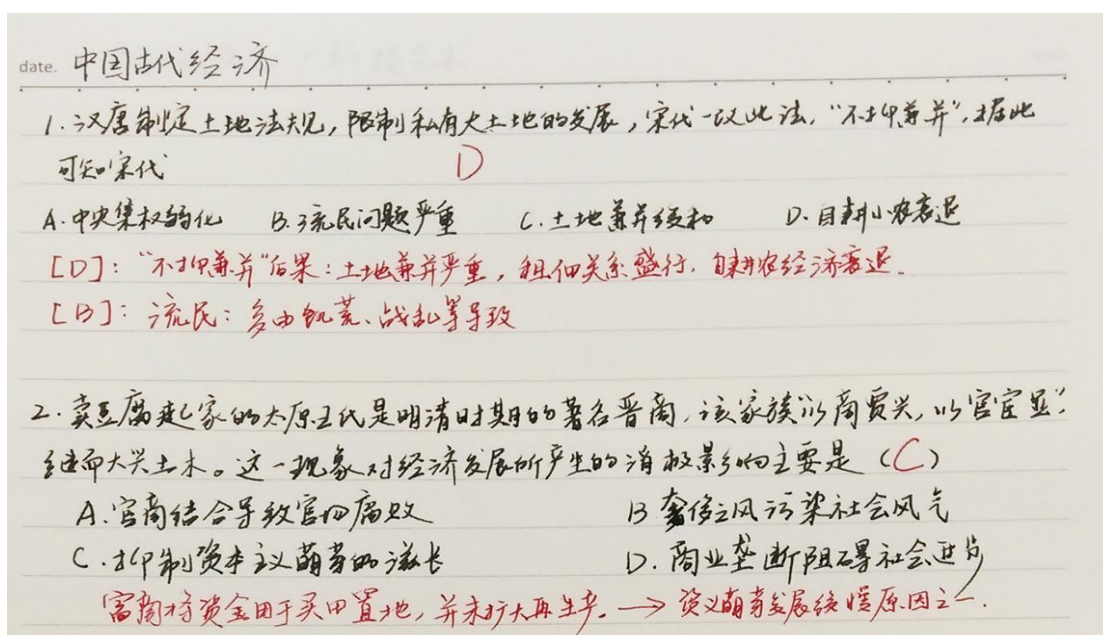 date. 中国古代经济
1.汉唐制定土地法规,限制私有大土地的发展,宋代一改此法,“不抑兼并”,据此
可知宋代
D
A.中央集权弱化 B.流民问题严重 C.土地兼并缓和 D.自耕小农衰退
[D]:“不抑兼并”后果:土地兼并严重,租佃关系盛行,自耕农经济衰退.
[B]:流民:多由饥荒、战乱等导致
2.卖豆腐起家的太原王氏是明清时期的著名晋商,该家族“以商贾兴,以官宦显”,
继而大兴土木。这一现象对经济发展所产生的消极影响主要是(C)
A.官商结合导致官场腐败 B 奢侈之风污染社会风气
C.抑制资本主义萌芽的滋长 D.商业垄断阻碍社会进步
富商将资金用于买田置地,并未扩大再生产.→资义萌芽发展缓慢原因之一.